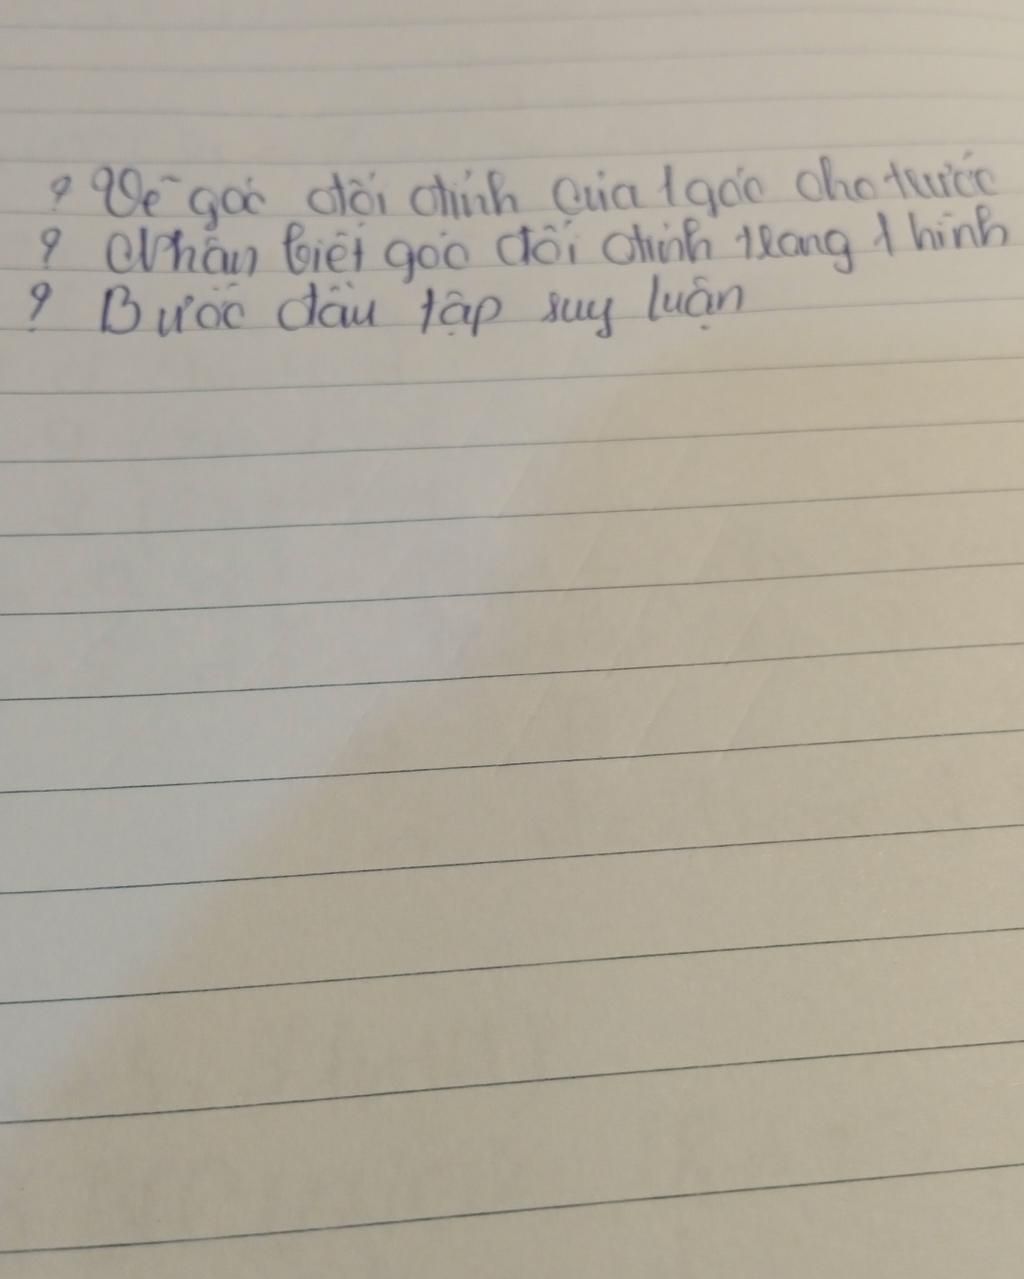 ? Vẽ góc đối đỉnh của 1 góc cho trước
? Nhận biết góc đối đỉnh trong 1 hình
? Bước đầu tập suy luận